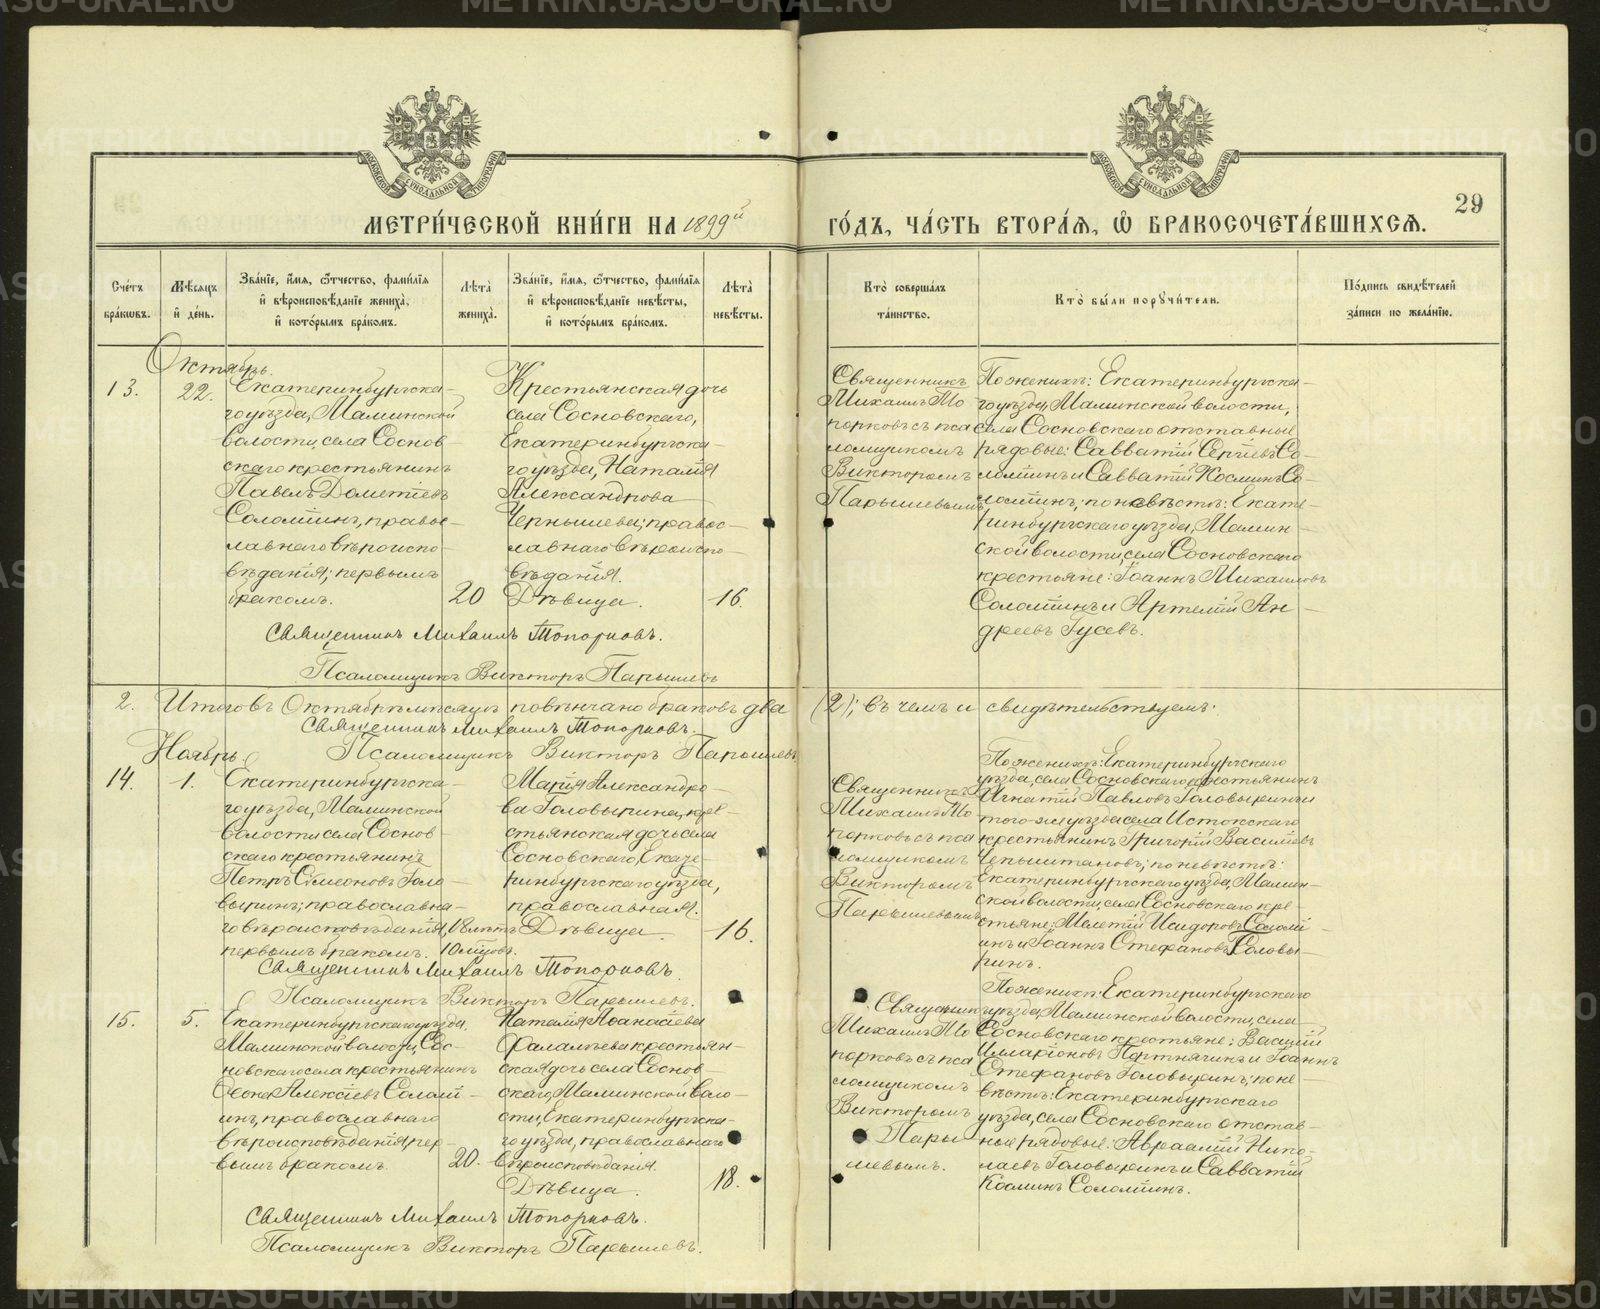 МОСКОВСКОЙ СѴНОДАЛЬНОЙ ТИПОГРАФІИ
МОСКОВСКОЙ СѴНОДАЛЬНОЙ ТИПОГРАФІИ
29
МЕТРИ́ЧЕСКОЙ КНИ́ГИ НА 1899й ГО́ДЪ, ЧА́СТЬ ВТОРА́Я, Ѡ БРАКОСОЧЕТА́ВШИХСЯ.
Сче́тъ бра́кωвъ.
Мѣ́сяцъ и҆ де́нь.
Зва́нїе, и҆́мя, ѻ҆́тчество, фами́лїя
и҆ вѣроисповѣ́данїе жениха̀,
и҆ кото́рымъ бра́комъ.
Лѣта̀ жениха̀.
Зва́нїе, и҆́мя, ѻ҆́тчество, фами́лїя
и҆ вѣроисповѣ́данїе невѣ́сты,
и҆ кото́рымъ бра́комъ.
Лѣта̀ невѣ́сты.
Кто̀ соверша́лъ та́инство.
Кто̀ бы́ли порꙋчи́тели.
По́дпись свидѣ́телей за́писи по жела́нїю.
Октябрь.
13.
22.
Екатеринбургска-
го уѣзда, Маминской
волости, села Соснов-
скаго крестьянинъ
Павелъ Дометіевъ
Соломеинъ, правос-
лавнаго вѣроиспо-
вѣданія; первымъ
бракомъ.
20
Крестьянская дочь
села Сосновскаго,
Екатеринбургска-
го уѣзда, Наталія
Александрова
Чернышева; правос-
лавнаго вѣроиспо-
вѣданія.
Дѣвица.
16.
Священникъ
Михаилъ То
порковъ съ пса
ломщикомъ
Викторомъ
Парышевымъ
По женихѣ: Екатеринбургска-
го уѣзда, Маминской волости,
села Сосновскаго отставные
рядовые: Савватій Сергіевъ Со-
ломеинъ и Савватій Косминъ Со-
ломеинъ; по невѣстѣ: Екате-
ринбургскаго уѣзда, Мамин-
ской волости, села Сосновскаго
крестьяне: Іоаннъ Михаиловъ
Соломеинъ и Артемій Ан-
дреевъ Гусевъ.
Священникъ Михаилъ Топорковъ.
Псаломщикъ Викторъ Парышевъ
2. Итого въ Октябрѣ мѣсяцѣ повѣнчано браковъ два (2); въ чемъ и свидѣтельствуемъ:
Священникъ Михаилъ Топорковъ.
Псаломщикъ Викторъ Парышевъ
Ноябрь
14.
1.
Екатеринбургска-
го уѣзда, Маминской
волости села Соснов-
скаго крестьянинъ
Петръ Симеоновъ Голо-
выринъ; православна-
го вѣроисповѣданія,
первымъ бракомъ.
18 лѣтъ
10 мѣсяц.
Марія Александро-
ва Головырина, кре-
стьянская дочь села
Сосновскаго, Екате-
ринбургскаго уѣзда,
православная.
Дѣвица.
16.
Священникъ
Михаилъ То
порковъ съ пса
ломщикомъ
Викторомъ
Парышевымъ
По женихѣ: Екатеринбургскаго
уѣзда, села Сосновскаго крестьянинъ
Игнатій Павловъ Головыринъ и
того-же уѣзда села Истокскаго
крестьянинъ Григорій Василіевъ
по невѣстѣ:
Екатеринбургскаго уѣзда, Мамин-
ской волости, села Сосновскаго кре-
стьяне: Мелетій Исидоровъ Соломе-
инъ и Іоаннъ Стефановъ Головы-
ринъ.
Священникъ Михаилъ Топорковъ.
Псаломщикъ Викторъ Парышевъ.
15.
5.
Екатеринбургскаго уѣзда,
Маминской волости, Сос-
новскаго села крестьянинъ
Алексіевъ Соломе-
инъ, православнаго
вѣроисповѣданія, пер-
вымъ бракомъ.
20.
Наталія Аѳанасіева
Фалалѣева крестьян-
ская дочь села Соснов-
скаго, Маминской воло-
сти, Екатеринбургска-
го уѣзда, православнаго
вѣроисповѣданія.
Дѣвица.
18.
Священникъ
Михаилъ То
порковъ съ пса
ломщикомъ
Викторомъ
Пары
шевымъ.
По женихѣ: Екатеринбургскаго
уѣзда, Маминской волости, села
Сосновскаго крестьяне: Василій
Илларіоновъ Партнягинъ и Іоаннъ
Стефановъ Головыринъ; по не-
вѣстѣ: Екатеринбургскаго
уѣзда, села Сосновскаго отстав-
ные рядовые: Авраамій Нико-
лаевъ Головыринъ и Савватій
Косминъ Соломеинъ.
Священникъ Михаилъ Топорковъ.
Псаломщикъ Викторъ Парышевъ.
METRIKI.GASO-URAL.RU